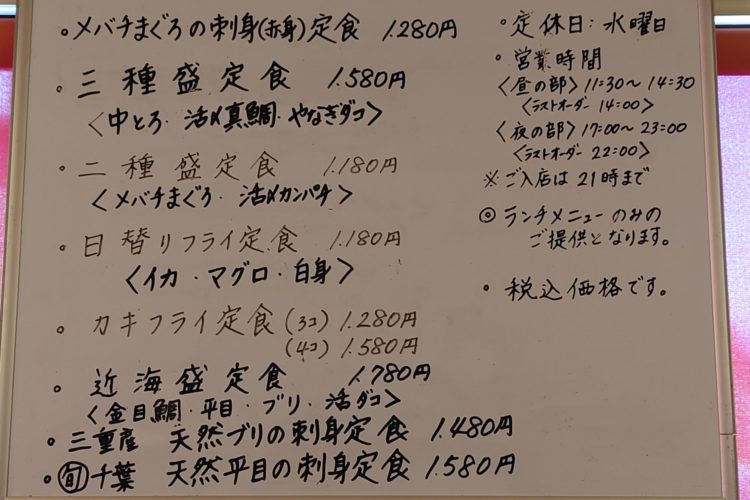 ・メバチまぐろの刺身(赤身)定食 1.280円
・三種盛定食 1.580円
〈中とろ・活〆真鯛・やなぎダコ〉
・二種盛定食 1.180円
〈メバチまぐろ・活〆カンパチ〉
・日替りフライ定食 1.180円
〈イカ・マグロ・白身〉
・カキフライ定食(3コ) 1.280円
(4コ) 1.580円
・近海盛定食 1.780円
〈金目鯛・平目・ブリ・活ダコ〉
・三重産 天然ブリの刺身定食 1.480円
・旬千葉 天然平目の刺身定食 1.580円
・定休日:水曜日
・営業時間
〈昼の部〉11:30〜14:30
〈ラストオーダー 14:00〉
〈夜の部〉17:00〜23:00
〈ラストオーダー 22:00〉
※ご入店は21時まで
◎ランチメニューのみの
ご提供となります。
・税込価格です。